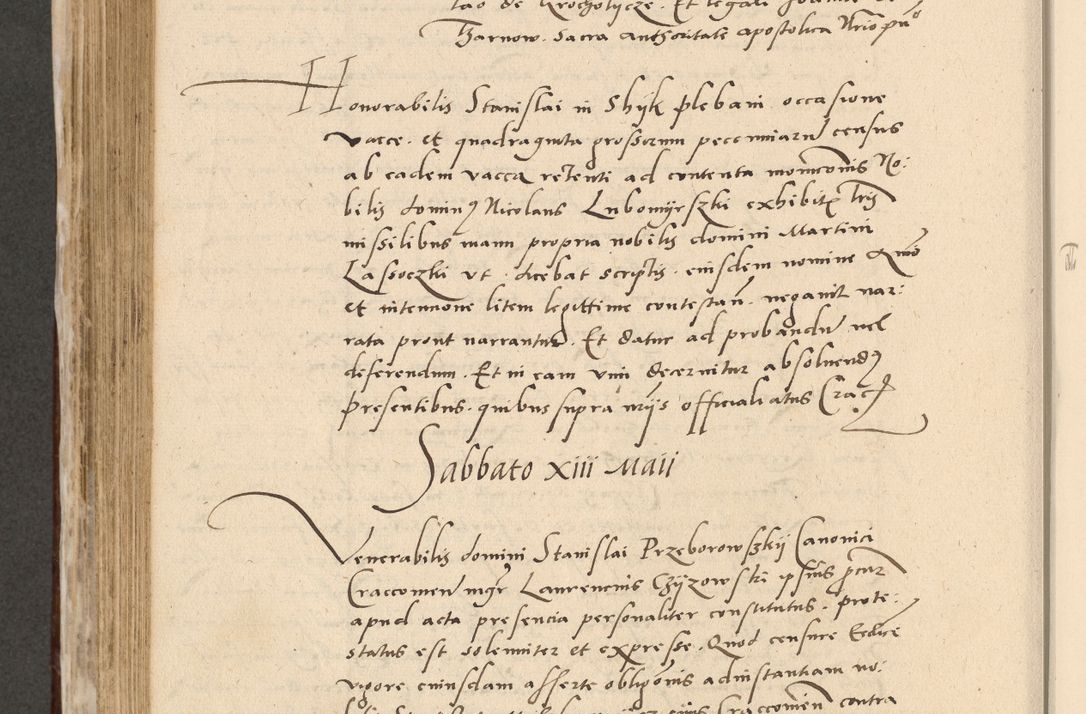 tao de Krocholycze. Et legali Joanne de
Tarnow. Sacra Authoritate apostolica Notario puco
Honorabilis Stanislai in Shyk plebani occasione
vacce. et quadraginta grossorum peccuniaru census
ab eadem vacca retenti ad contenta monicionis No:
bilis dominus Nicolaus Lubomyrszki exhibitis literis
missilibus manu propria nobilis domini Martini
Lassoczki ut. dicebat scriptis. eiusdem nomine Quo
et intencione litem legittime contestan. negavit nar:
rata prout narrantur. Et datur ad probandu vel
deferendum. Et in eam vim decernitur absolvendus
presentibus. quibus supra nrijs officialiatus Crac
Sabbato xiii Maii
Venerabilis domini Stanislai Przeborowszkij Canonici
Craccomen mgr Laurencius Czijzowski ipsius procur
apud acta presencia personaliter constitutus. prote:
status est solemniter et expresse. Quod censure Eccłice
vigore. cuiusdam asserte obligonis ad instantiam no:
Craccomen contra